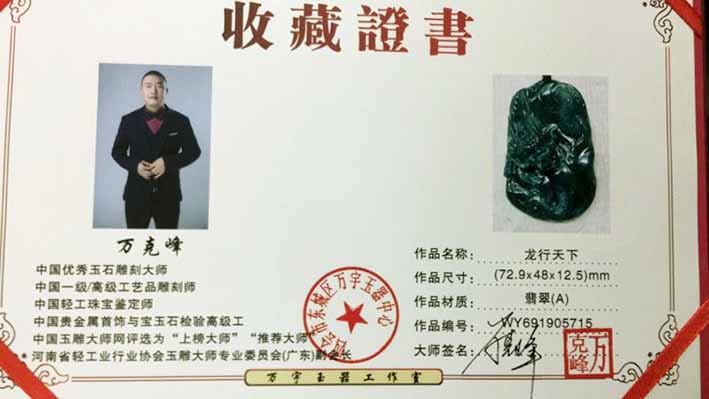 收藏證書
万克峰
中国优秀玉石雕刻大师
中国一级/高级工艺品雕刻师
中国轻工珠宝鉴定师
中国贵金属首饰与宝玉石检验高级工
中国玉雕大师网评选为“上榜大师”“推荐大师”
河南省轻工业行业协会玉雕大师专业委员会(广东)副会长
市东城区万宇玉器中心
作品名称: 龙行天下
作品尺寸: (72.9x48x12.5)mm
作品材质: 翡翠(A)
作品编号: WY691905715
大师签名:
万克峰
万宇玉器工作室